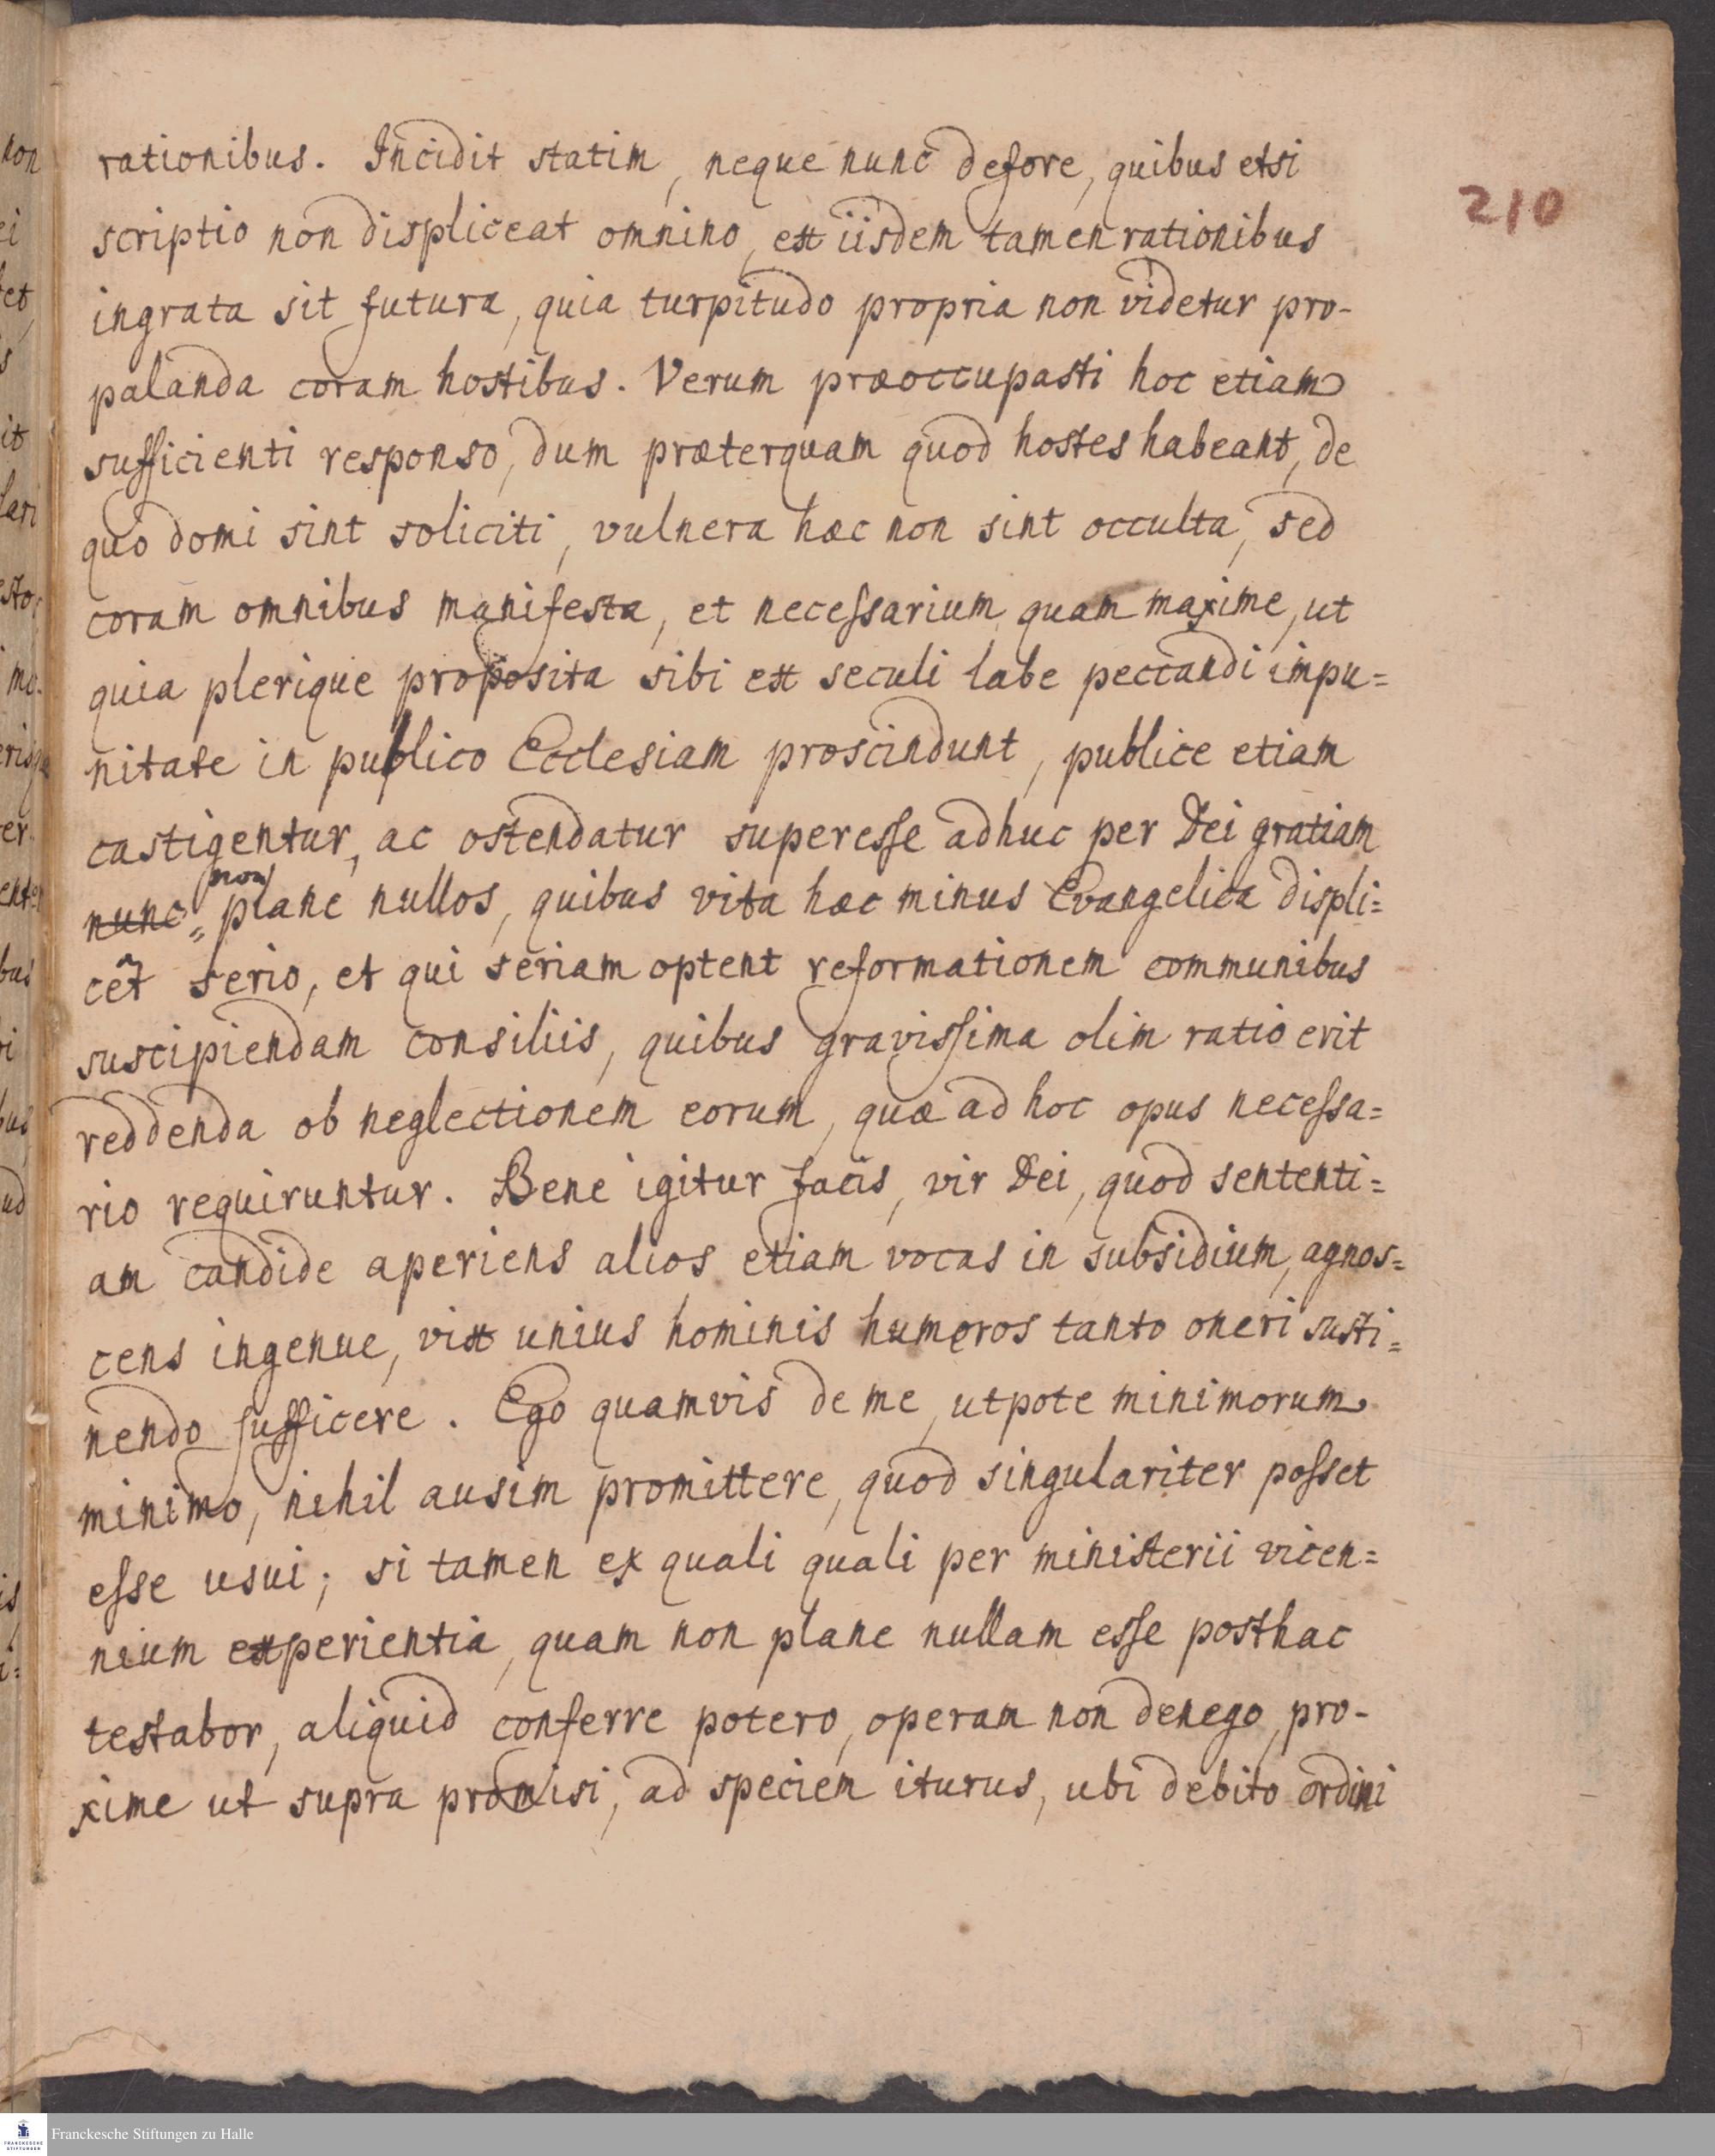 210
rationibus. Incidit statim, neque nunc defore, quibus etsi
scriptio non displiceat omnino, ex iisdem tamen rationibus
ingrata sit futura, quia turpitudo propria non videtur pro-
palanda coram hostibus. Verum præoccupasti hoc etiam
sufficienti responso, dum præterquam quod hostes habeant, de
quo domi sint soliciti, vulnera hæc non sint occulta, sed
coram omnibus manifesta, et necessarium quam maxime, ut
quia plerique proposita sibi ex seculi labe peccandi impu=
nitate in publico Ecclesiam proscindunt, publice etiam
castigentur, ac ostendatur superesse adhuc per Dei gratiam
nunc non plane nullos, quibus vita hæc minus Evangelica displi=
cet serio, et qui seriam optent reformationem communibus
suscipiendam consiliis, quibus gravissima olim ratio erit
reddenda ob neglectionem eorum, quæ ad hoc opus necessa=
rio requiruntur. Bene igitur facis, vir Dei, quod sententi=
am candide aperiens alios etiam vocas in subsidium, agnos=
cens ingenue, vix unius hominis humeros tanto oneri susti=
nendo sufficere. Ego quamvis de me, utpote minimorum
minimo, nihil ausim promittere, quod singulariter posset
esse usui; si tamen ex quali quali per ministerii vicen=
nium experientia, quam non plane nullam esse posthac
testabor, aliquid conferre potero, operam non denego, pro-
xime ut supra promisi, ad speciem iturus, ubi debito ordini
Franckesche Stiftungen zu Halle